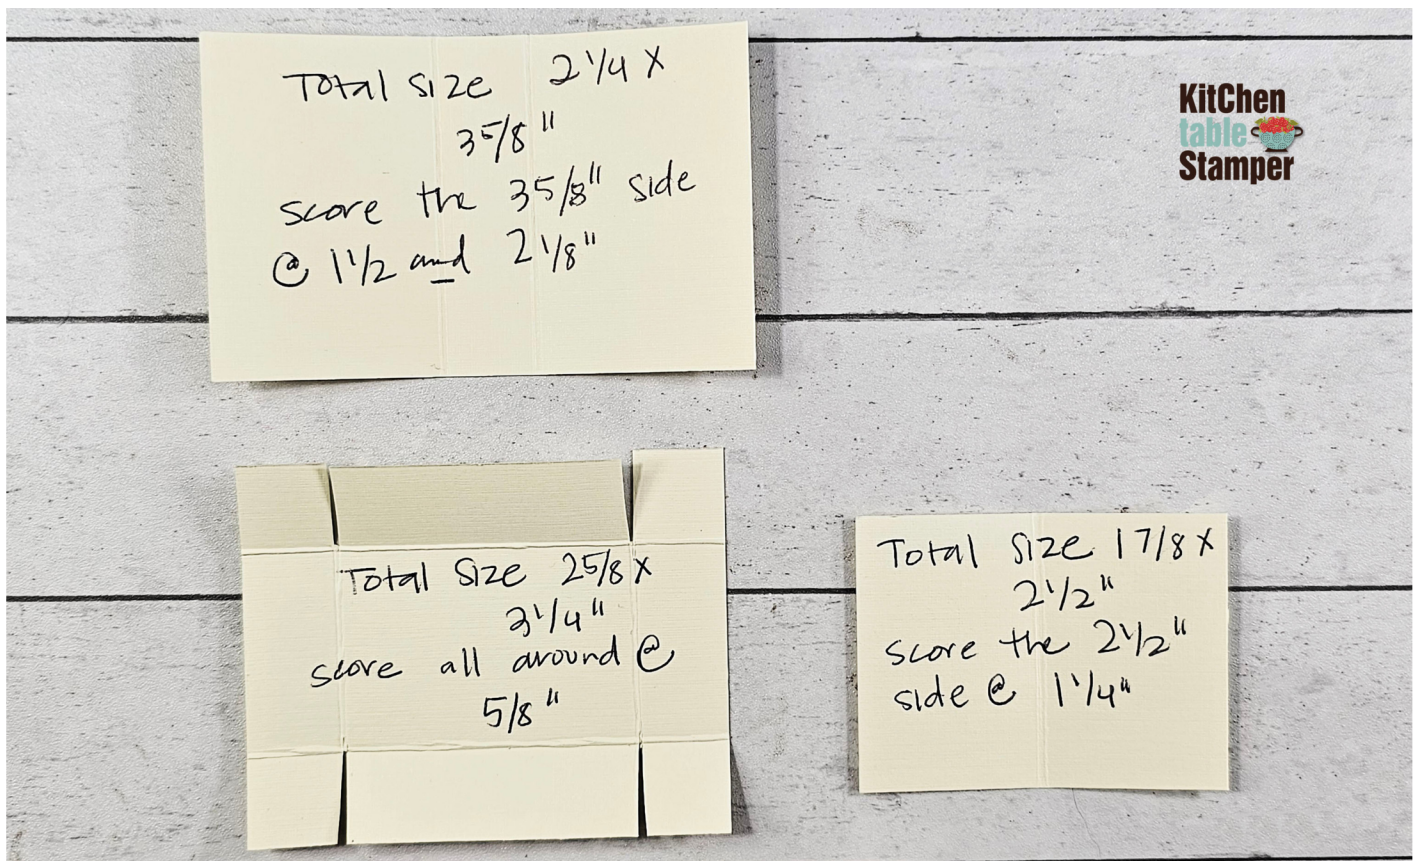 Total size 2 1/4 X
3 5/8"
score the 3 5/8" side
@ 1 1/2 and 2 1/8"
KitChen
table
Stamper
Total size 2 5/8 X
3 1/4"
score all around @
5/8"
Total size 1 7/8 X
2 1/2"
score the 2 1/2"
side @ 1 1/4"